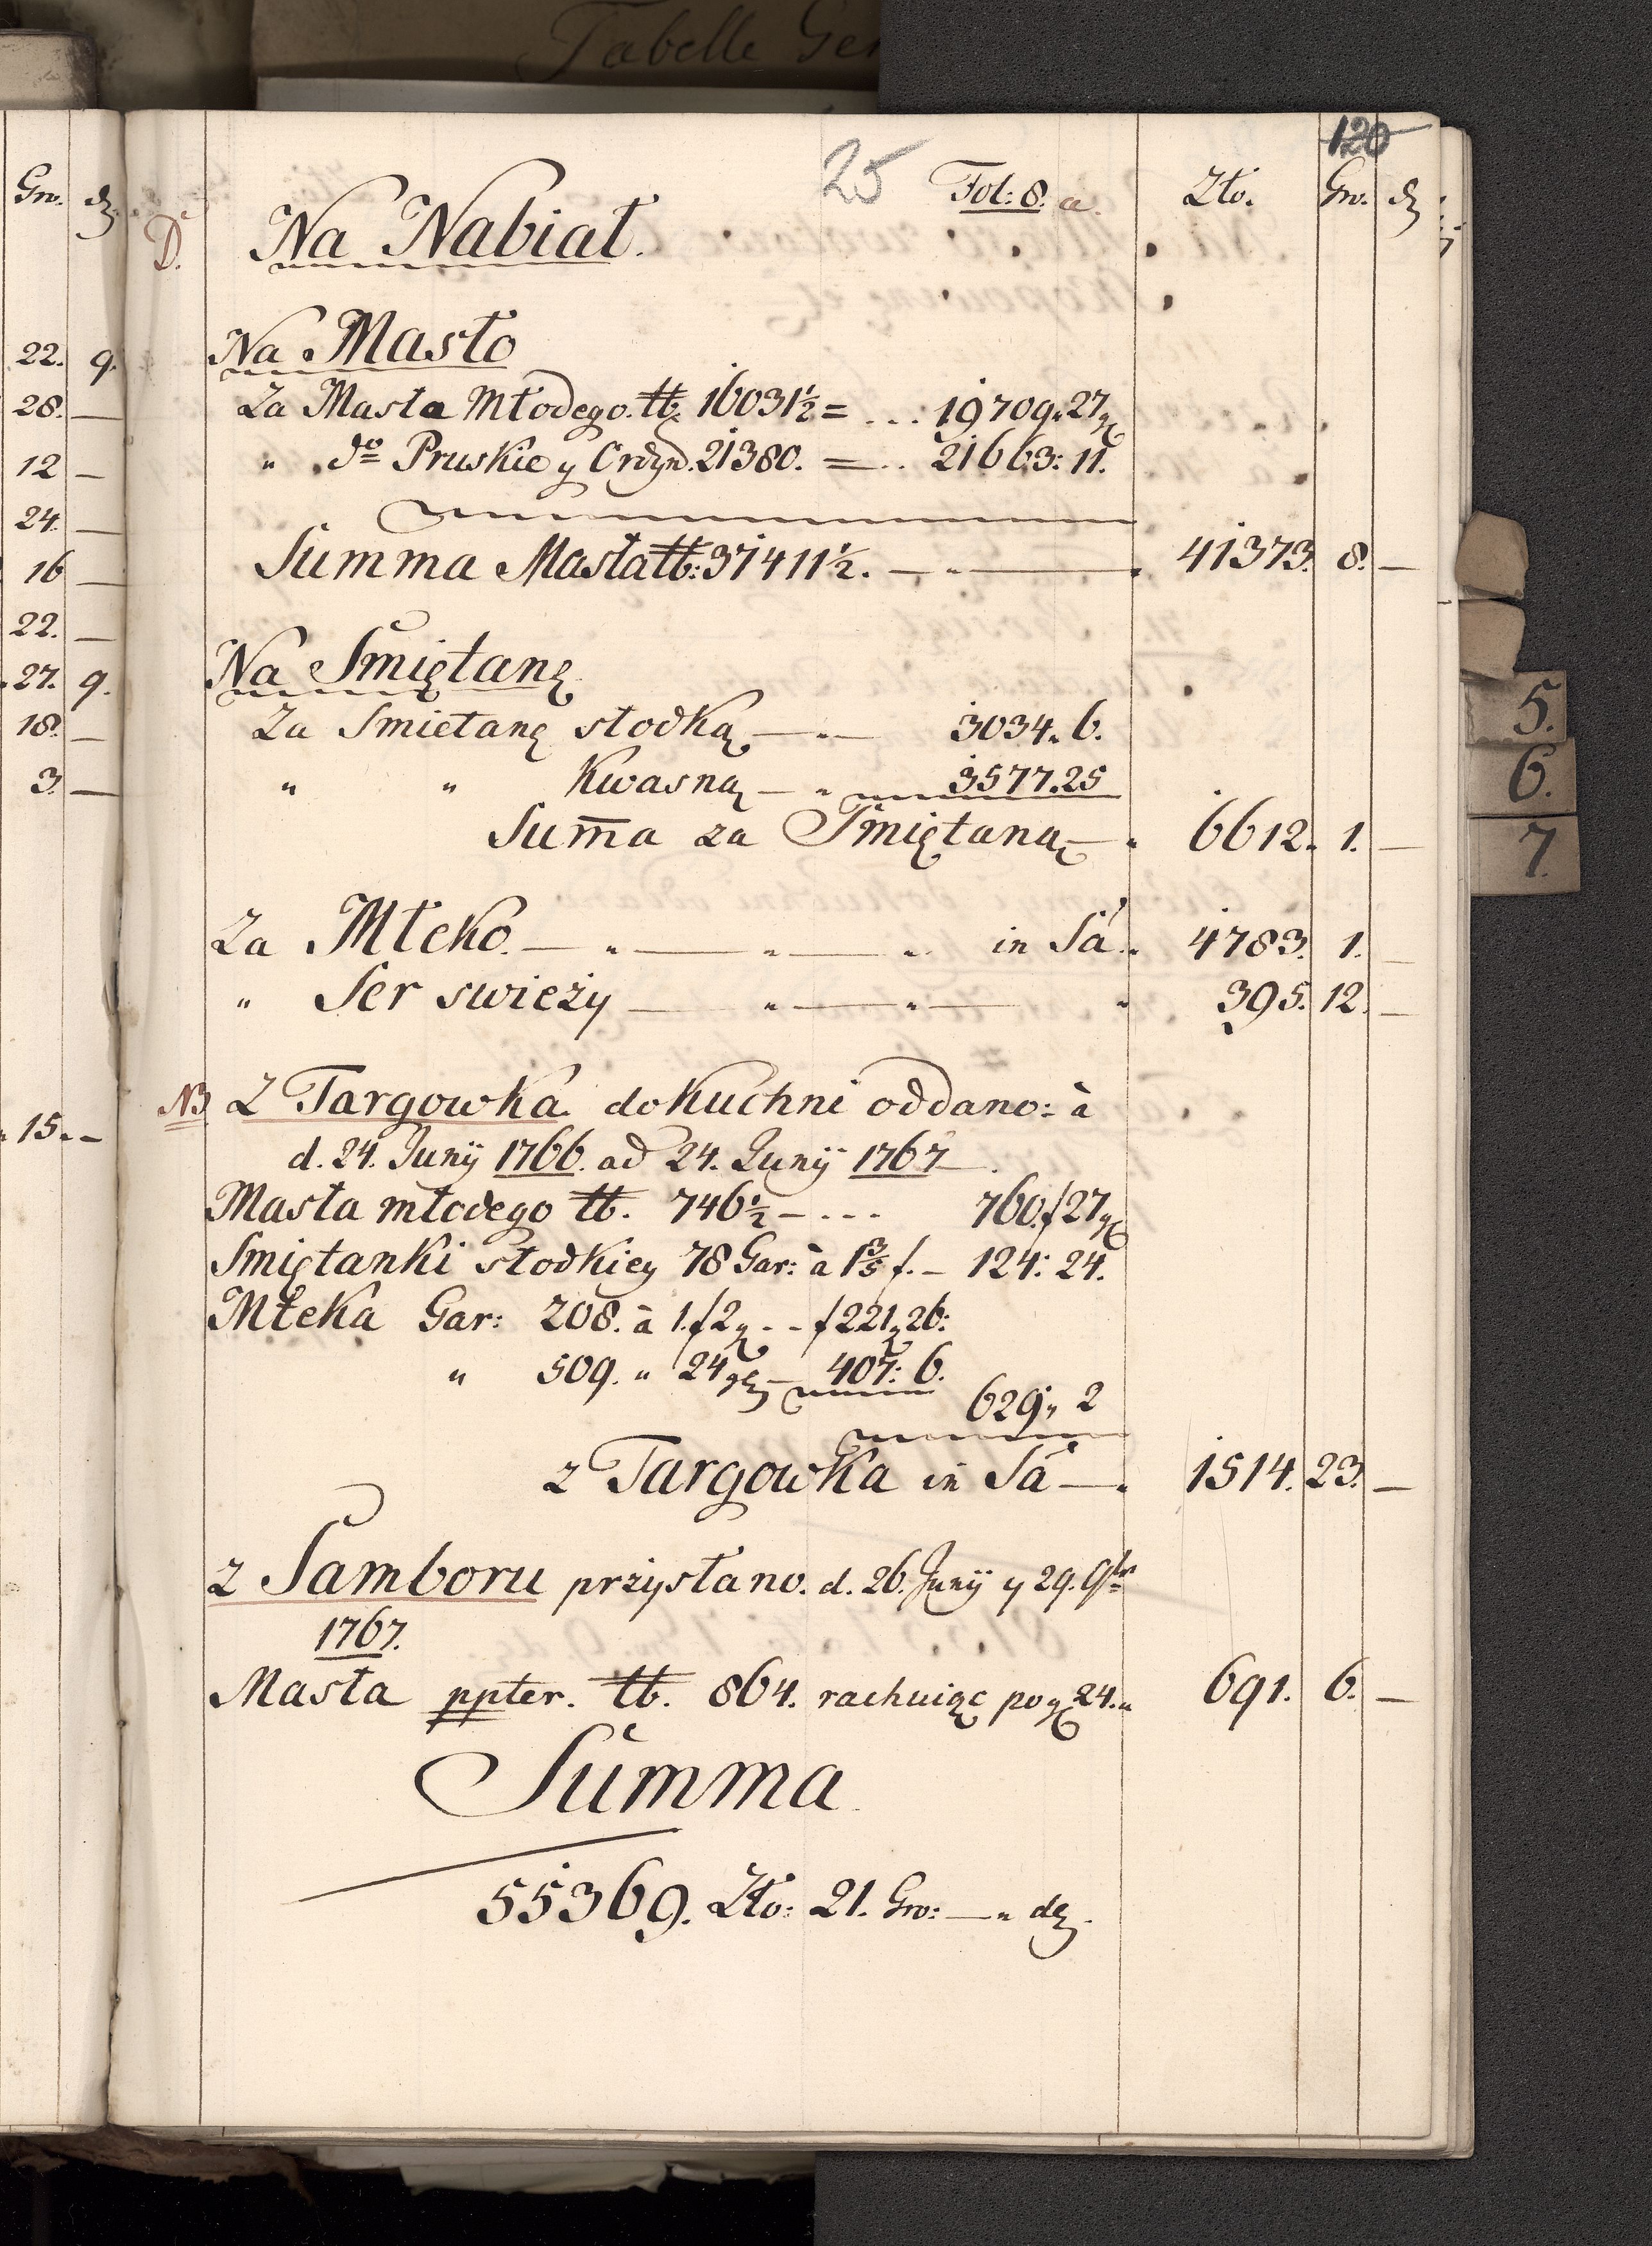 Tabelle Gen
25
120
Gro. dz.
Fol: 8. a.
Zło. Gro. dz
D.
Na Nabiał.
Na Masło
22. 9.
Za Masła Młodego. ℔. 16031½ = ... 19709. 27 gr
28. —
" do Pruskie y Ordyn. 21380. = .. 21663: 11.
12 —
24. —
Summa Masła ℔: 37411½. — " — 41373. 8. —
16 —
22. —
Na Smiętanę
27. 9.
Za Smietanę słodką — " — 3034. 6.
18. —
" " Kwasną — " 3577. 25
3. —
Sum̄a za Smiętaną — " 6612. 1. —
Za Mleko. — " — " — " in Sá " 4783. 1. —
" Ser swieży — " — " — " 395. 12. —
NB Z Targowka do Kuchni oddano: à
15. –
d. 24. Junÿ 1766. ad 24. Junÿ 1767.
Masła młodego ℔. 746½ — ... 760. f 27 gr
Smiętanki słodkiey 78 Gar: à 1⅗ f. – 124: 24.
Mleka Gar: 208. à 1. f 2 gr - - f 221 gr 26:
" 509. " 24 gr — 407: 6.
629 " 2
z Targowka in Sá — " 1514. 23. —
z Samboru przysłano. d. 26. Junÿ y 29. 9br
1767.
Masła ppter. ℔. 864. rachuiąc po gr 24. " 691. 6. —
Summa
55369. Zło: 21. Gro: — " dz.
5.
6.
7.